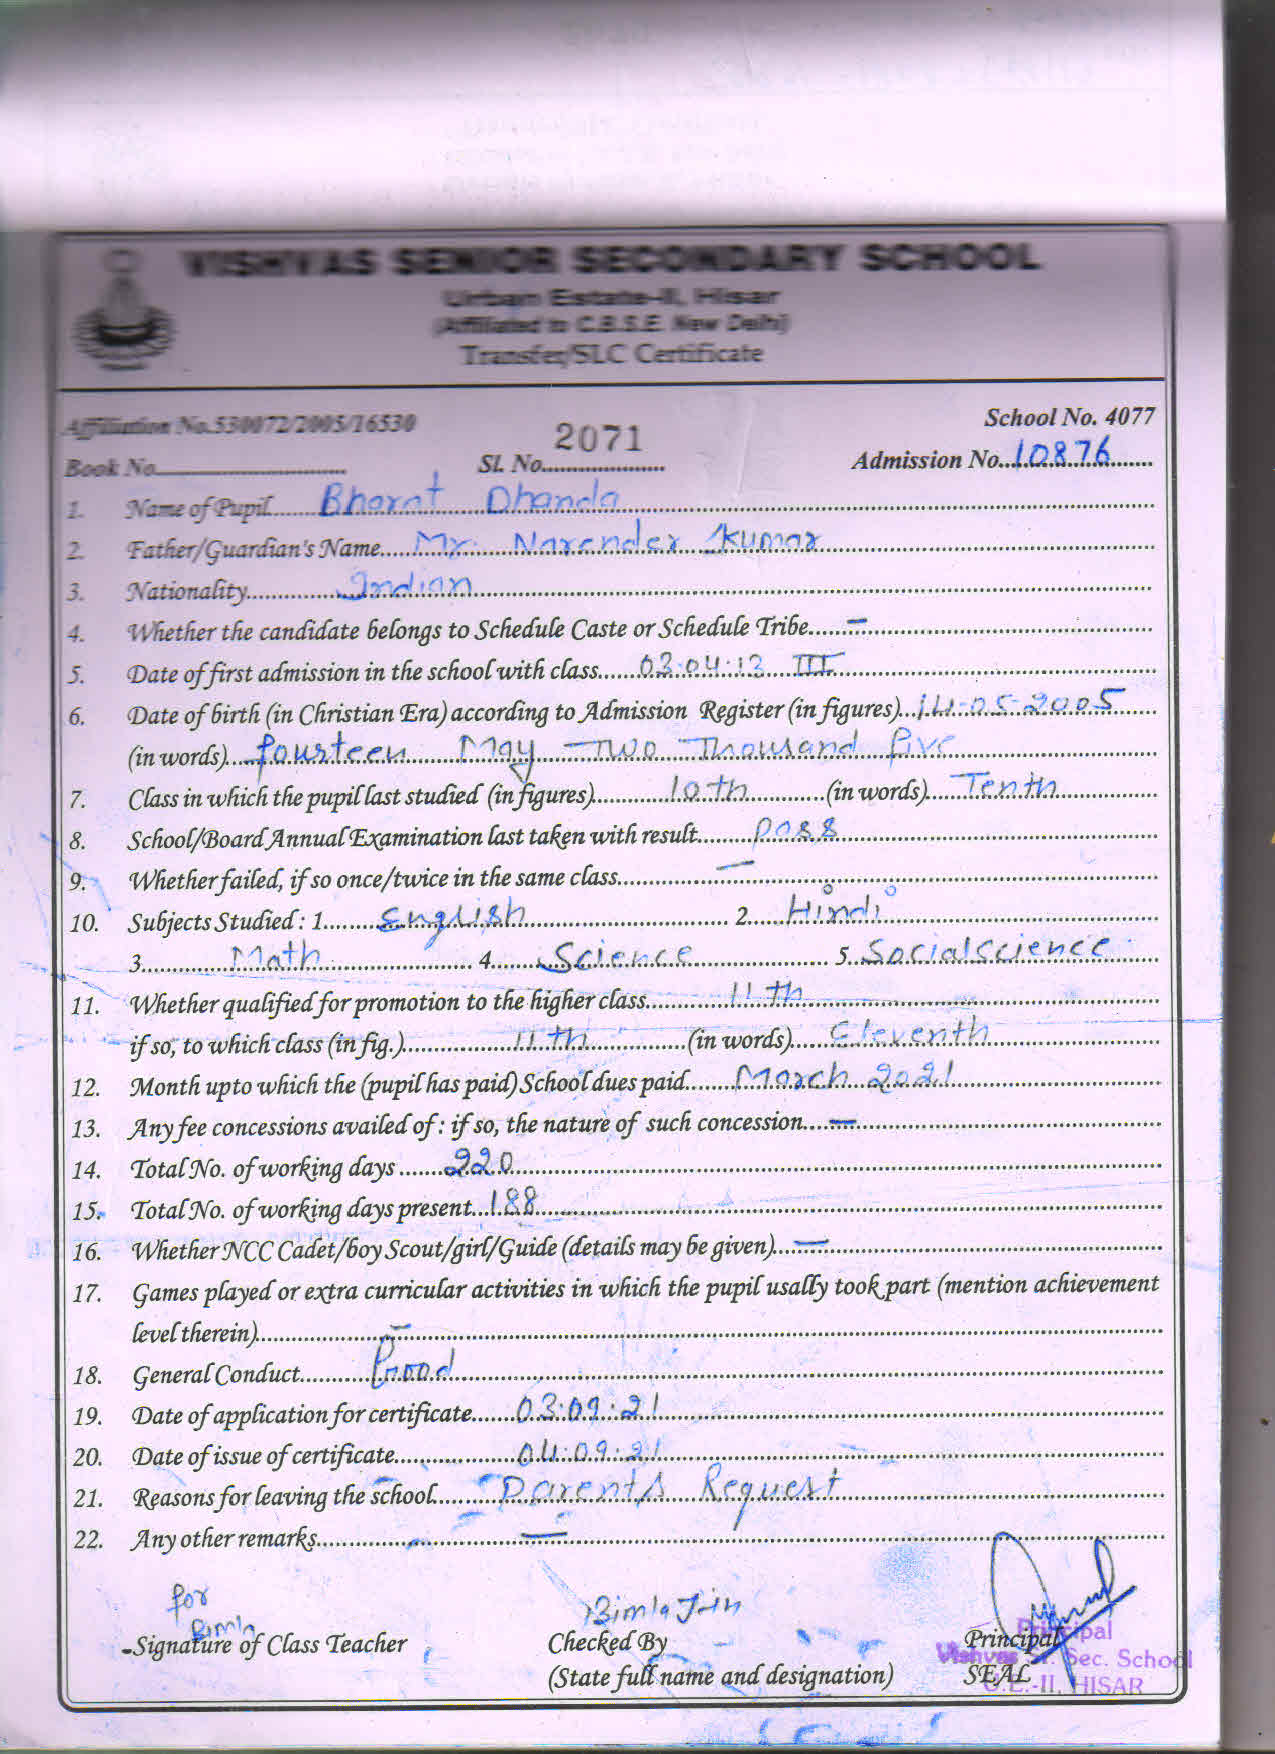 VISHVAS SENIOR SECONDARY SCHOOL
Urban Estate-II, Hisar
(Affiliated to C.B.S.E. New Delhi)
Transfer/SLC Certificate
Affiliation No.530072/2005/16530 School No. 4077
Book No. Sl. No. 2071 Admission No. 10876
1. Name of Pupil Bharat Dhanda
2. Father/Guardian's Name Mr. Narender Kumar
3. Nationality Indian
4. Whether the candidate belongs to Schedule Caste or Schedule Tribe —
5. Date of first admission in the school with class 03.04.13 III
6. Date of birth (in Christian Era) according to Admission Register (in figures) 14-05-2005
(in words) fourteen May Two Thousand five
7. Class in which the pupil last studied (in figures) 10th (in words) Tenth
8. School/Board Annual Examination last taken with result pass
9. Whether failed, if so once/twice in the same class —
10. Subjects Studied : 1. English 2. Hindi
3. Math 4. Science 5. Social Science
11. Whether qualified for promotion to the higher class 11th
if so, to which class (in fig.) 11th (in words) Eleventh
12. Month upto which the (pupil has paid) School dues paid March 2021
13. Any fee concessions availed of : if so, the nature of such concession —
14. Total No. of working days 220
15. Total No. of working days present 188
16. Whether NCC Cadet/boy Scout/girl/Guide (details may be given) —
17. Games played or extra curricular activities in which the pupil usally took part (mention achievement
level therein) —
18. General Conduct Good
19. Date of application for certificate 03.09.21
20. Date of issue of certificate 04.09.21
21. Reasons for leaving the school Parents Request
22. Any other remarks —
for
Bimla Bimla Jain
Signature of Class Teacher Checked By Principal
(State full name and designation) SEAL
Principal
Vishvas Sr. Sec. School
U.E.-II, HISAR